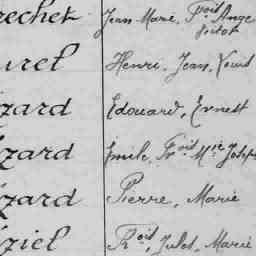 rechet Jean Marie, Fois Ange
Victor
urel Henri, Jean, Louis
zard Edouard, Ernest
zard Emile, Fois Mie Joseph
zard Pierre, Marie
ziel Fois, Jules, Marie